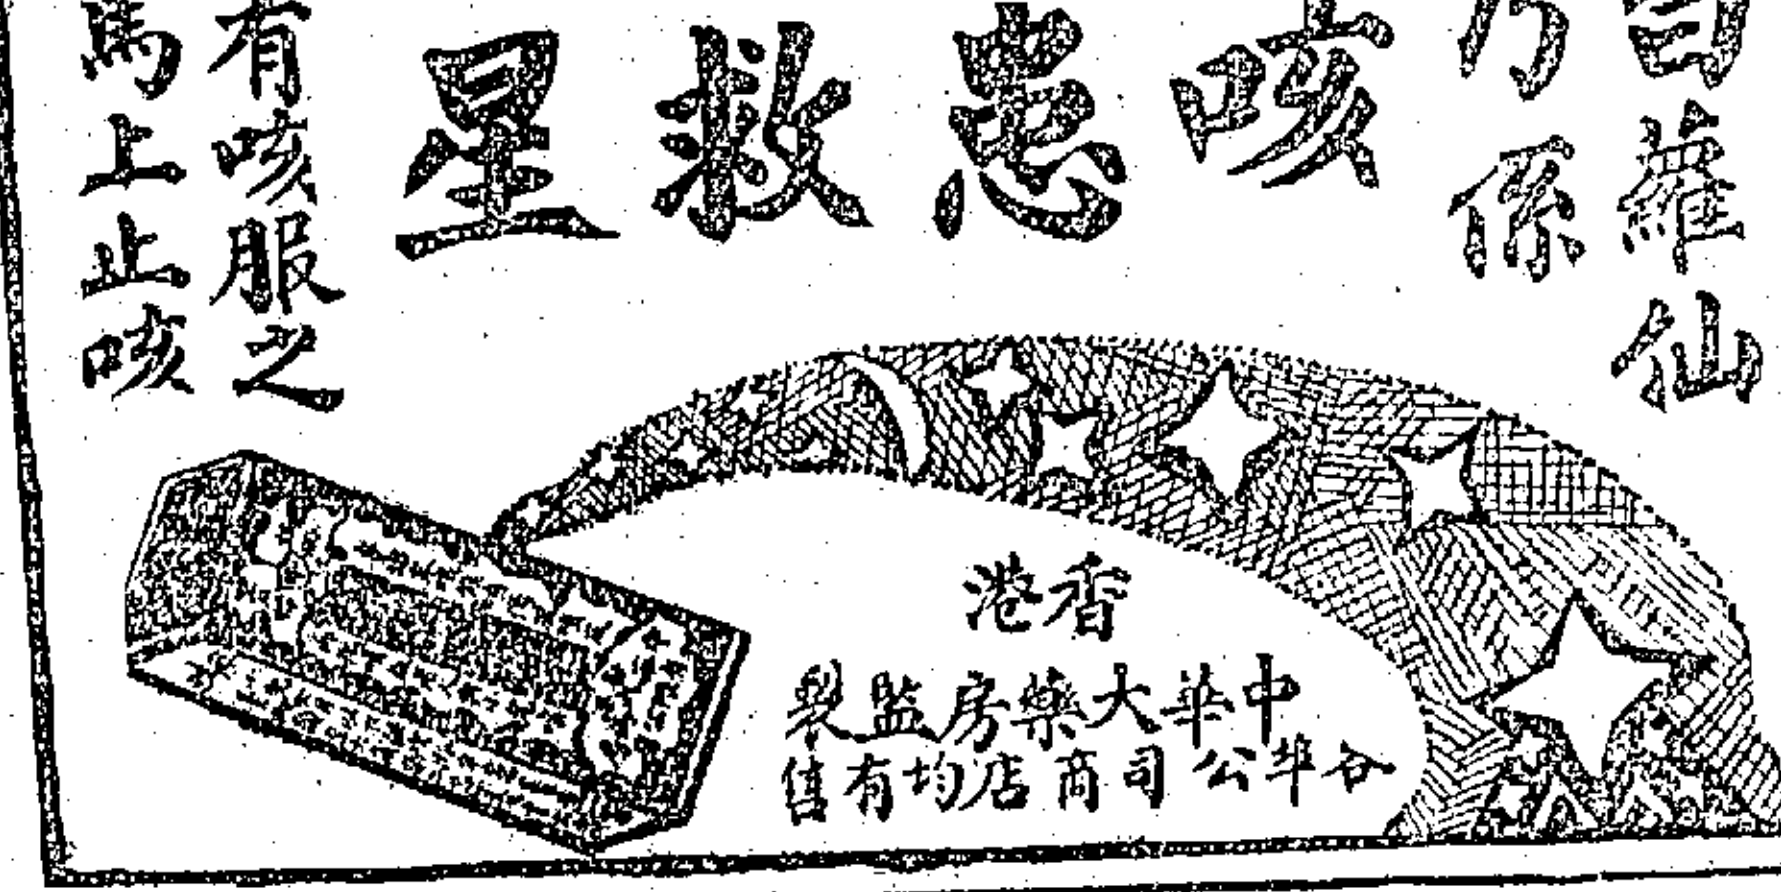 羅仙
乃係
咳患救星
有咳服之
馬上止咳
香港
中華大藥房監製
各埠公司商店均有售